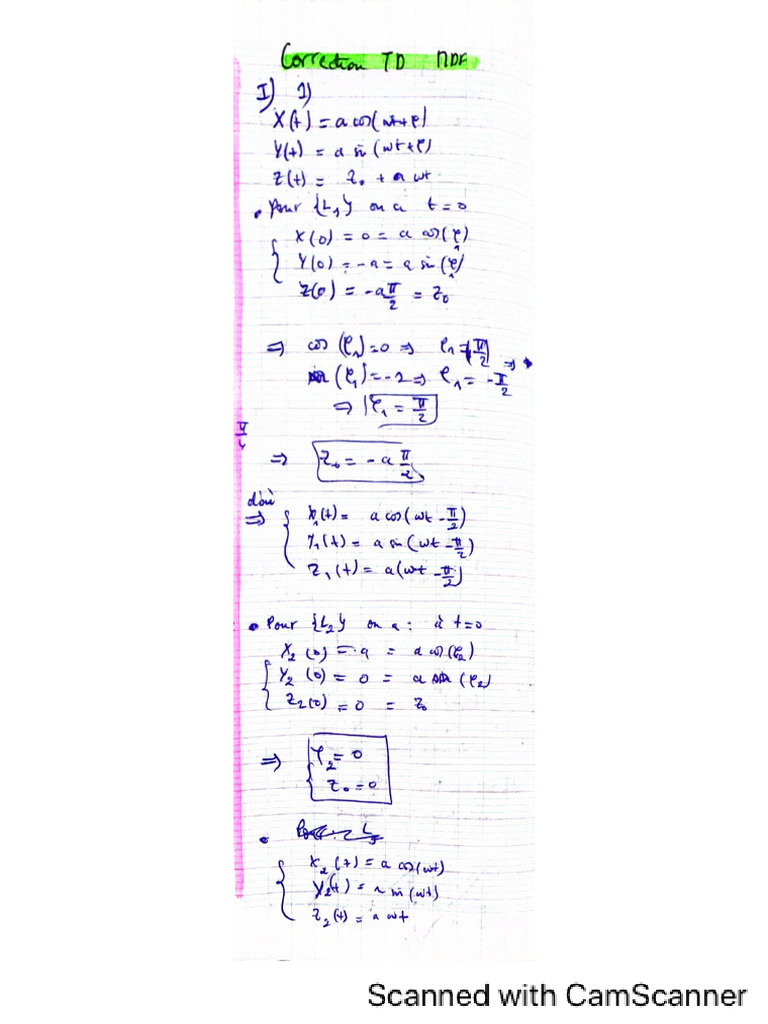 Correction TD MDF
I) 1)
X(t) = a cos(wt+φ)
Y(t) = a sin(wt+φ)
Z(t) = Z₀ + a wt
• Pour {L₁} on a t=0
X(0) = 0 = a cos(φ₁)
Y(0) = -a = a sin(φ₁)
Z(0) = -a π/2 = Z₀
⇒ cos(φ₁)=0 ⇒ φ₁ = π/2 ⇒
sin(φ₁)=-1 ⇒ φ₁ = -π/2
⇒ φ₁ = π/2
π/4
⇒ Z₀ = -a π/2
d'où
⇒ X₁(t) = a cos(wt - π/2)
Y₁(t) = a sin(wt - π/2)
Z₁(t) = a(wt - π/2)
• Pour {L₂} on a : à t=0
X₂(0) = a = a cos(φ₂)
Y₂(0) = 0 = a sin(φ₂)
Z₂(0) = 0 = Z₀
⇒ φ₂ = 0
Z₀ = 0
•
X₂(t) = a cos(wt)
Y₂(t) = a sin(wt)
Z₂(t) = a wt
Scanned with CamScanner